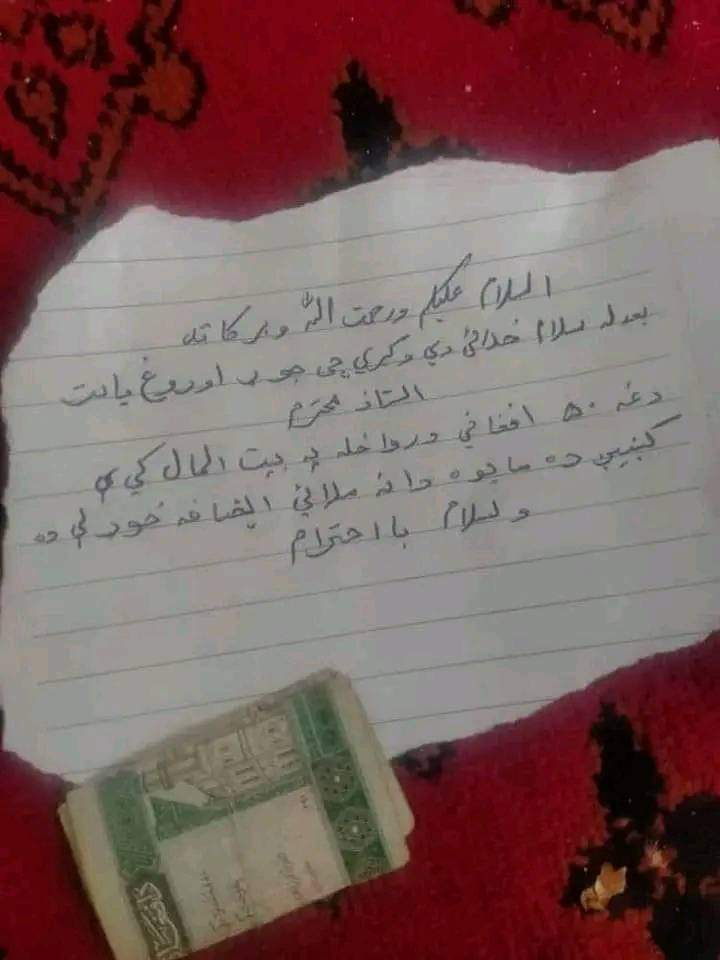 السلام عليكم ورحمت الله وبركاته
بعد له سلام خدائ دي وكړي چي جوړ اوروغ ياست
استاذ محترم
دغه ۵۰ افغاني درواخله په بيت المال کي ي
کښيږده ما يوه دانه ملائي اضافه خوړلې ده
ولسلام با احترام